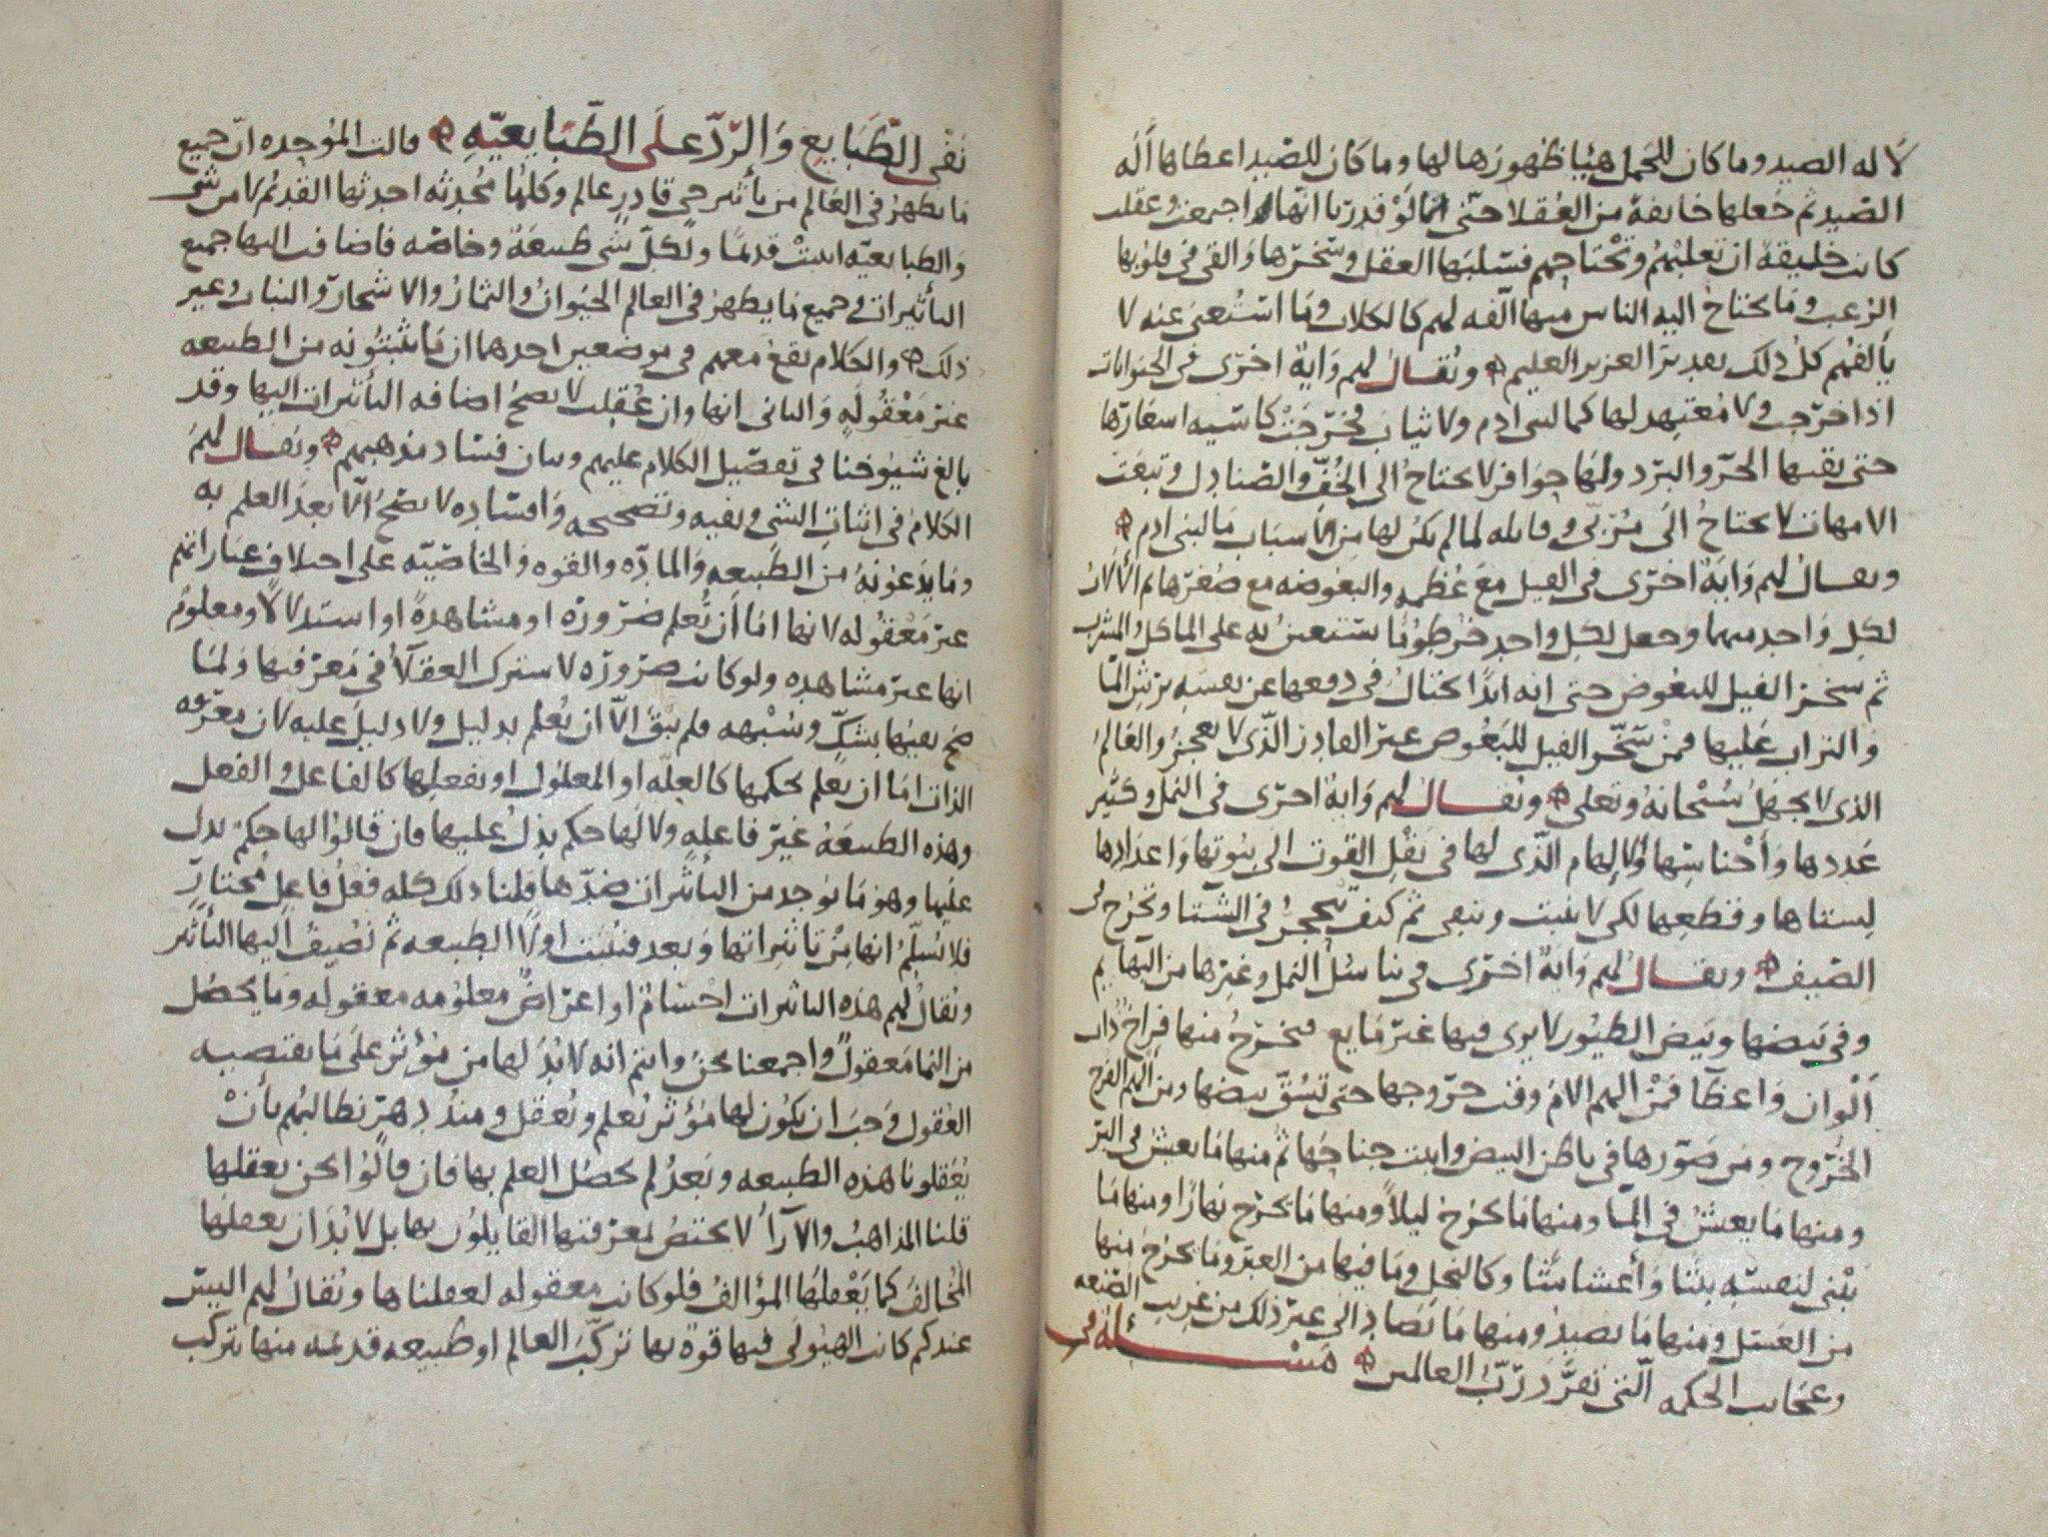 لاله الصيد وما كان للحمل هيا ظهورها لها وما كان للصيد اعطاها اله
الصيد ثم جعلها خايفة من العقلا حتى انها لو قدرنا انها اجمعت وعقلت
كانت خليقة ان تغلبهم وتجتاحهم فسلبها العقل وسخرها والقى في قلوبها
الرعب وما يحتاج اليه الناس منها الفه لهم كالكلاب وما استغنى عنه لا
يالفهم كل ذلك بقدير العزيز العليم ويقال لهم واية اخرى في الحيوانات
اذا خرجت ولا متعهد لها كما لبنى ادم ولا ثياب فخرجت كاسيه اشعارها
حتى يقيها الحر والبرد ولها حوافر لا يحتاج الى الخف والصنادل وتبعت
الامهات لا يحتاج الى مربى وقابله لما لم يكن لها من الاسباب ما لبنى ادم
ويقال لهم واية اخرى في الفيل مع عظمه والبعوضه مع صغرها ثم الالات
لكل واحد منهما وجعل لكل واحد خرطوما يستعين به على الماكل والمشرب
ثم سخر الفيل للبعوض حتى انه ابدا يحتال في دفعها عن نفسه برش الما
والتراب عليها فمن سخر الفيل للبعوض غير القادر الذى لا يعجز والعالم
الذى لا يجهل سبحانه وتعلى ويقال لهم واية اخرى في النمل وكثير
عددها واجناسها والالهام الذى لها في نقل القوت الى بيوتها واعدادها
لستاها وقطعها لكى لا ينبت وتبقى ثم كيف تحجر في الشتا وتخرج في
الصيف ويقال لهم واية اخرى في تناسل النمل وغيرها من البهايم
وفي بيضها وبيض الطيور لا يرى فيها غير مايع فيخرج منها فراخ ذات
الوان واعضا فمن الهم الام وقت خروجها حتى تشق بيضها ومن الهم الفرخ
الخروج ومن صورها في باطن البيض وانبت جناحها ثم منها ما يعيش في البر
ومنها ما يعيش في الما ومنها ما يخرج ليلا ومنها ما يخرج نهارا ومنها ما
يبنى لنفسه بيتا واعشاشا وكالنحل وما فيها من العبر وما يخرج منها
من العسل ومنها ما يصيد ومنها ما يصاد الى غير ذلك من غريب الصنعه
وعجايب الحكمه التى تفرد رب العالمين مسئلة في
نفى الطبايع والرد على الطبايعيه قالت الموحده ان جميع
ما يظهر في العالم من تأثير حى قادر عالم وكلها محدثه احدثها القديم لا من شى
والطبايعيه اثبتت قدما ولكل شى طبيعة وخاصه فاضافت اليها جميع
التأثيرات في جميع ما يظهر في العالم الحيوان والثمار والاشجار والنبات وغير
ذلك والكلام يقع معهم في موضعين احدهما ان ما يثبتونه من الطبيعه
غير معقوله والثانى انها وان عقلت لا يصح اضافه التأثيرات اليها وقد
بالغ شيوخنا في تفصيل الكلام عليهم وبيان فساد مذهبهم ويقال لهم
الكلام في اثبات الشى ونفيه وتصحيحه وافساده لا يصح الا بعد العلم به
وما يدعونه من الطبيعه والمادّه والقوه والخاصّيّه على اختلاف عباراتهم
غير معقوله لانها اما أن تُعلم ضرورة او مشاهدة او استدلالا ومعلوم
انها غير مشاهده ولو كانت ضروره لاشترك العقلا في معرفتها ولما
صح نفيها بشك وشبهه فلم يبق الا ان يعلم بدليل ولا دليل عليه لان معرفه
الذات اما ان يعلم بحكمها كالعله او المعلول او بفعلها كالفاعل والفعل
وهذه الطبيعة غير فاعله ولا لها حكم يدل عليها فان قالوا لها حكم يدل
عليها وهو ما يوجد من التأثيرات ضدها قلنا ذلك كله فعل فاعل مختار
فلا نسلم انها من تاثيراتها وبعد فتثبت اولا الطبيعه ثم نضيف اليها التأثير
ويقال لهم هذه التاثيرات اجسام او اعراض معلومه معقوله وما يحصل
من النما معقول واجمعنا نحن وانتم انه لا بد لها من مؤثر على ما يقتضيه
العقول وجب ان يكون لها مؤثر يُعلم ويُعقل ومنذ دهر نطالبهم بأن
يعقلونا هذه الطبيعه وبعد لم يحصل العلم بها فان قالوا نحن نعقلها
قلنا المذاهب والآرأ لا يختص بمعرفتها القايلون بها بل لا بد ان يعقلها
المخالف كما يعقلها المؤالف فلو كانت معقوله لعقلناها ويقال لهم اليس
عندكم كانت الهيولى فيها قوة بها تركب العالم او طبيعه قديمه منها يتركب